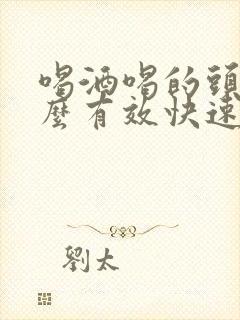 喝酒喝的頭
麼有效快速
劉太